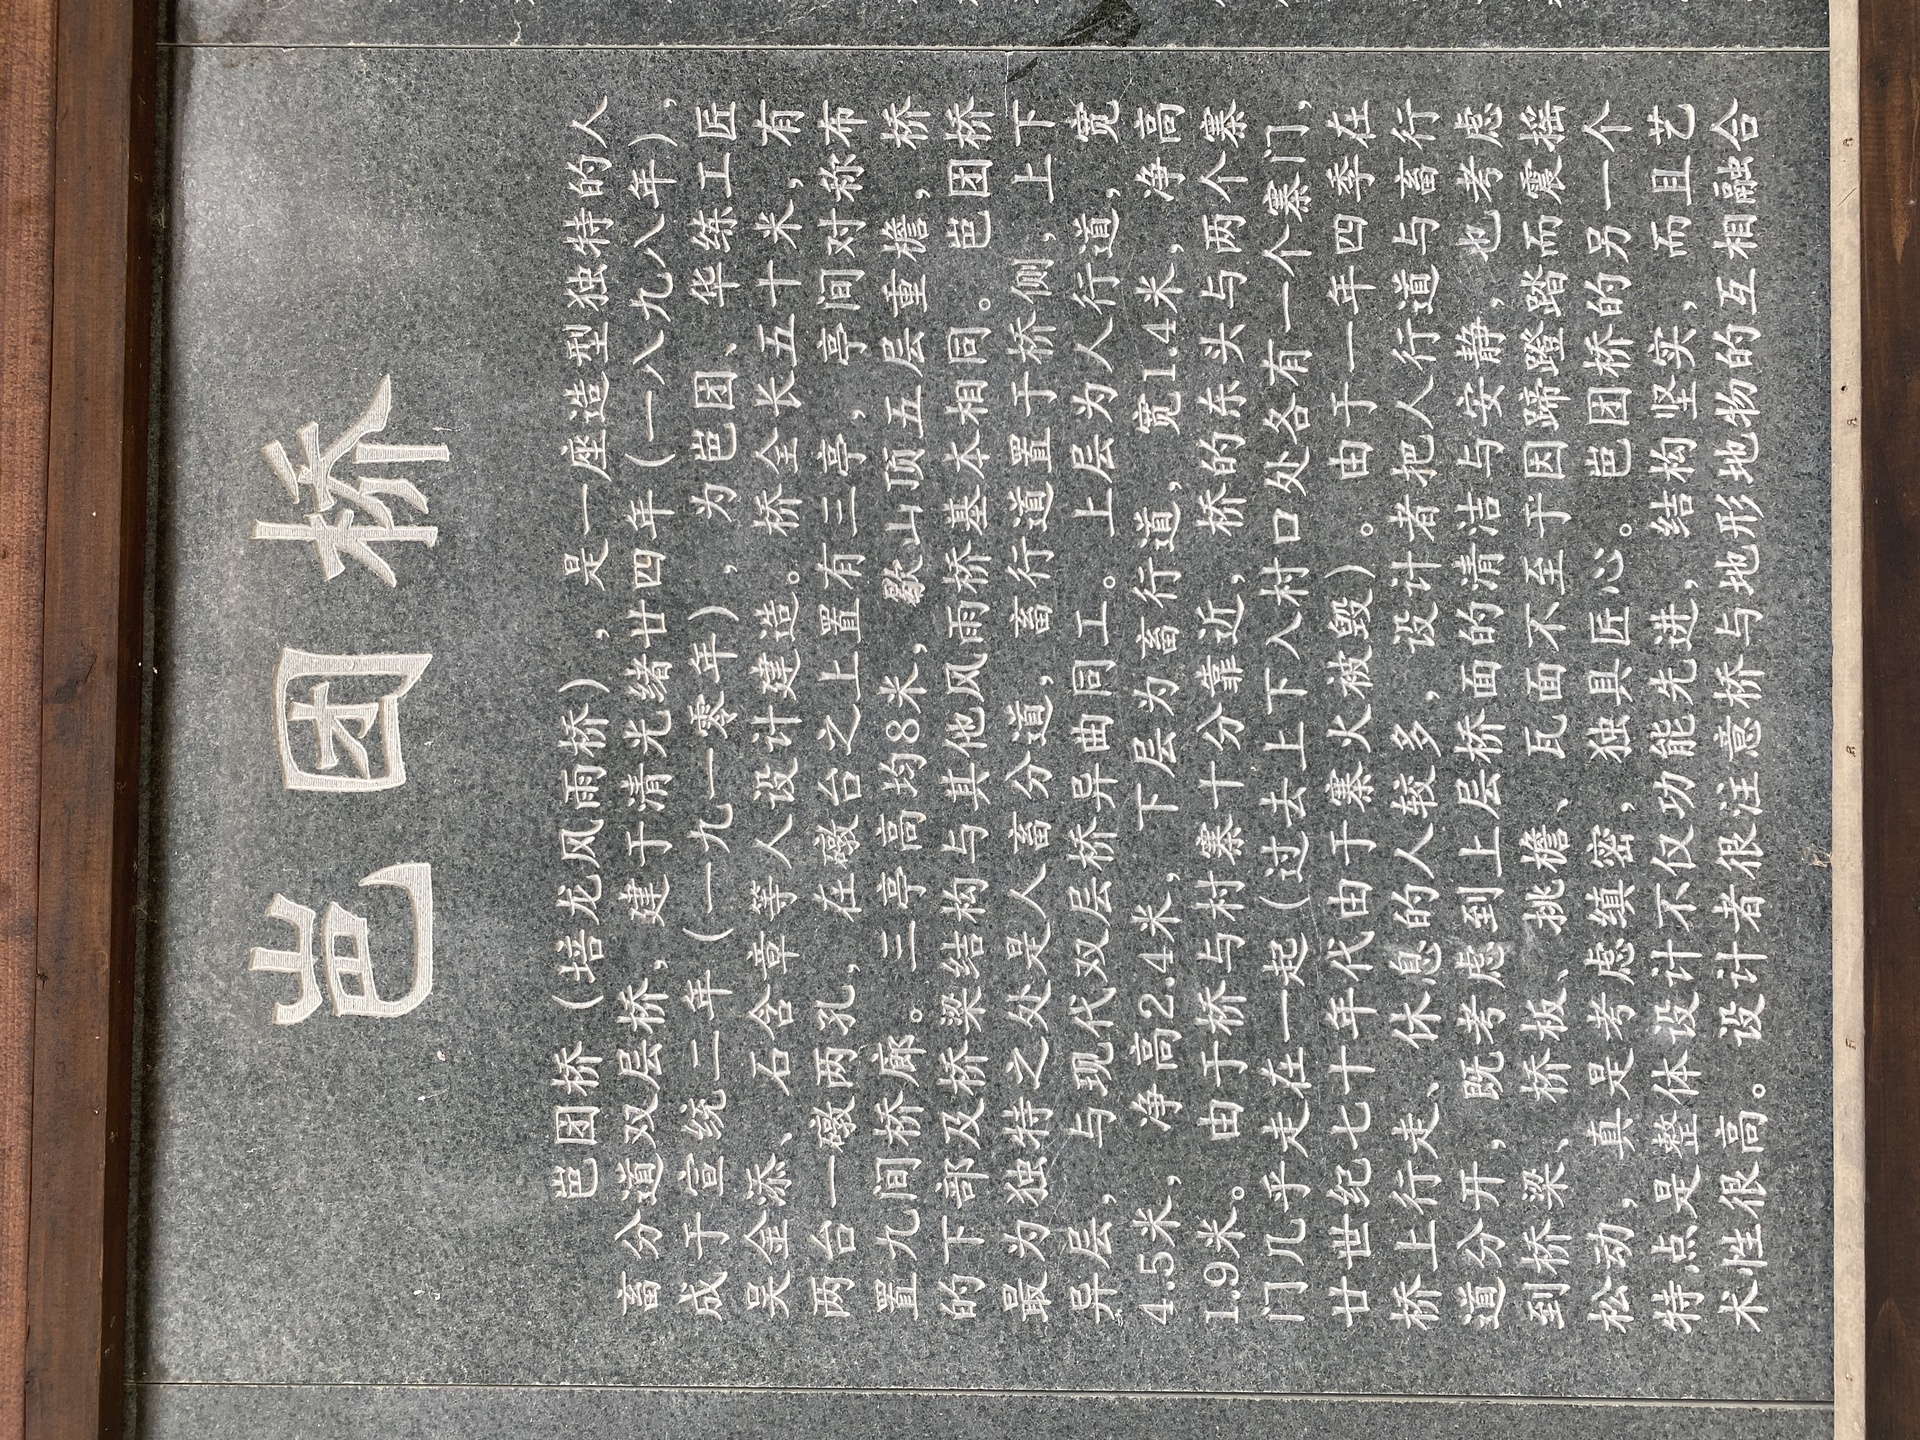 岜团桥
岜团桥（培龙风雨桥），是一座造型独特的人
畜分道双层桥，建于清光绪廿四年（一八九八年），
成于宣统二年（一九一零年），为岜团、华练工匠
吴金添、石含章等人设计建造。桥全长五十米，有
两台一礅两孔，在礅台之上置有三亭，亭间对称布
置九间桥廊。三亭高均8米，歇山顶五层重檐，桥
的下部及桥梁结构与其他风雨桥基本相同。岜团桥
最为独特之处是人畜分道，畜行道置于桥侧，上下
异层，与现代双层桥异曲同工。上层为人行道，宽
4.5米，净高2.4米，下层为畜行道，宽1.4米，净高
1.9米。由于桥与村寨十分靠近，桥的东头与两个寨
门几乎走在一起（过去上下入村口处各有一个寨门，
廿世纪七十年代由于寨火被毁）。由于一年四季在
桥上行走、休息的人较多，设计者把人行道与畜行
道分开，既考虑到上层桥面的清洁与安静，也考虑
到桥梁、桥板、挑檐、瓦面不至于因蹄蹬踏而震摇
松动，真是考虑缜密，独具匠心。岜团桥的另一个
特点是整体设计不仅功能先进，结构坚实，而且艺
术性很高。设计者很注意桥与地形地物的互相融合